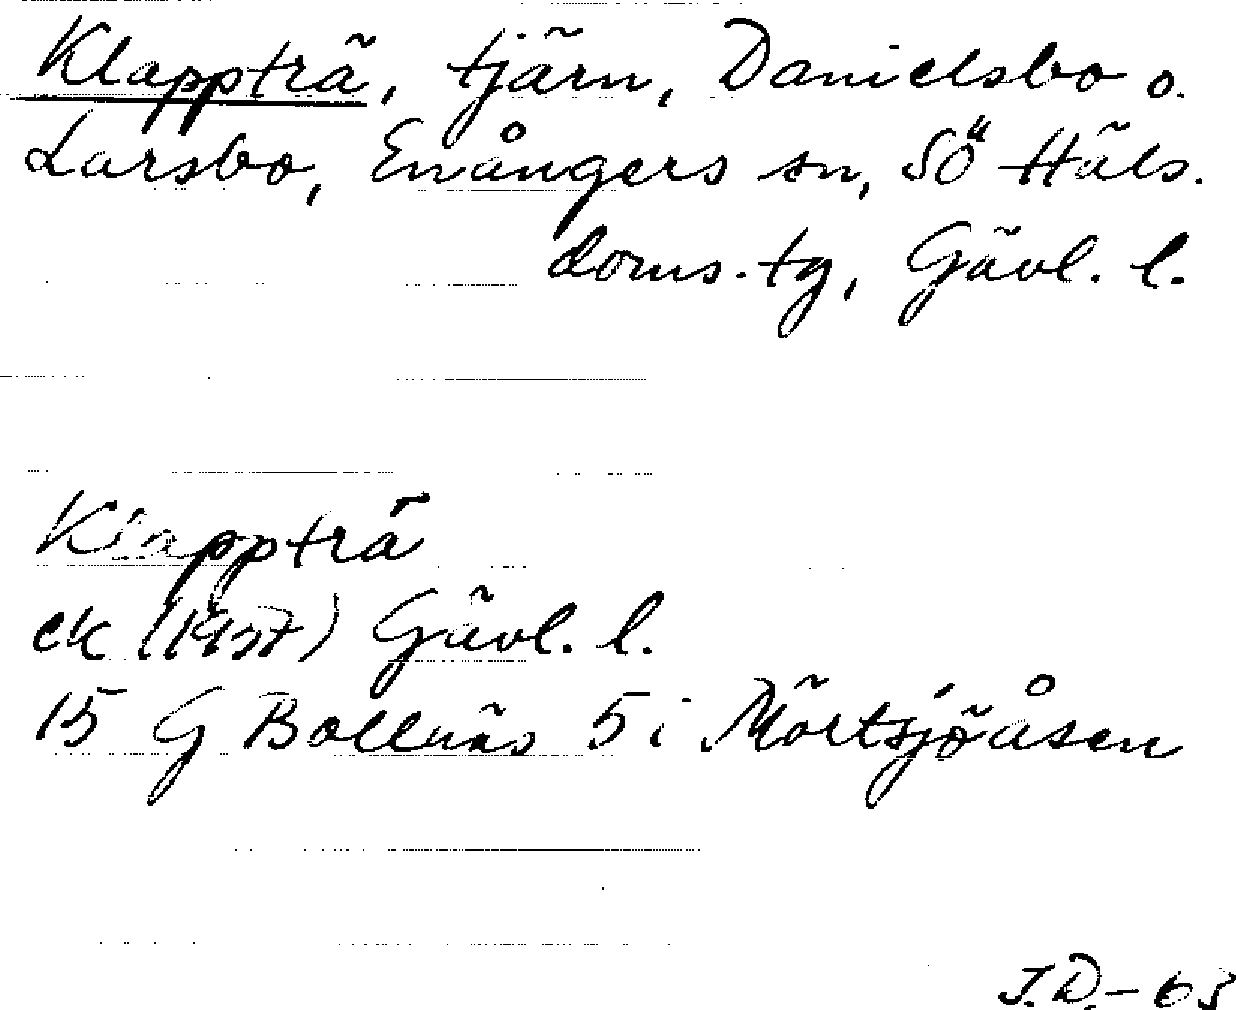 Klappträ, tjärn, Danielsbo o.
Larsbo, Enångers sn, SÖ Häls.
doms. tg, Gävl. l.
Klappträ
ek (1957) Gävl. l.
15 G Bollnäs 5 i Mörtsjöåsen
J.D.-63